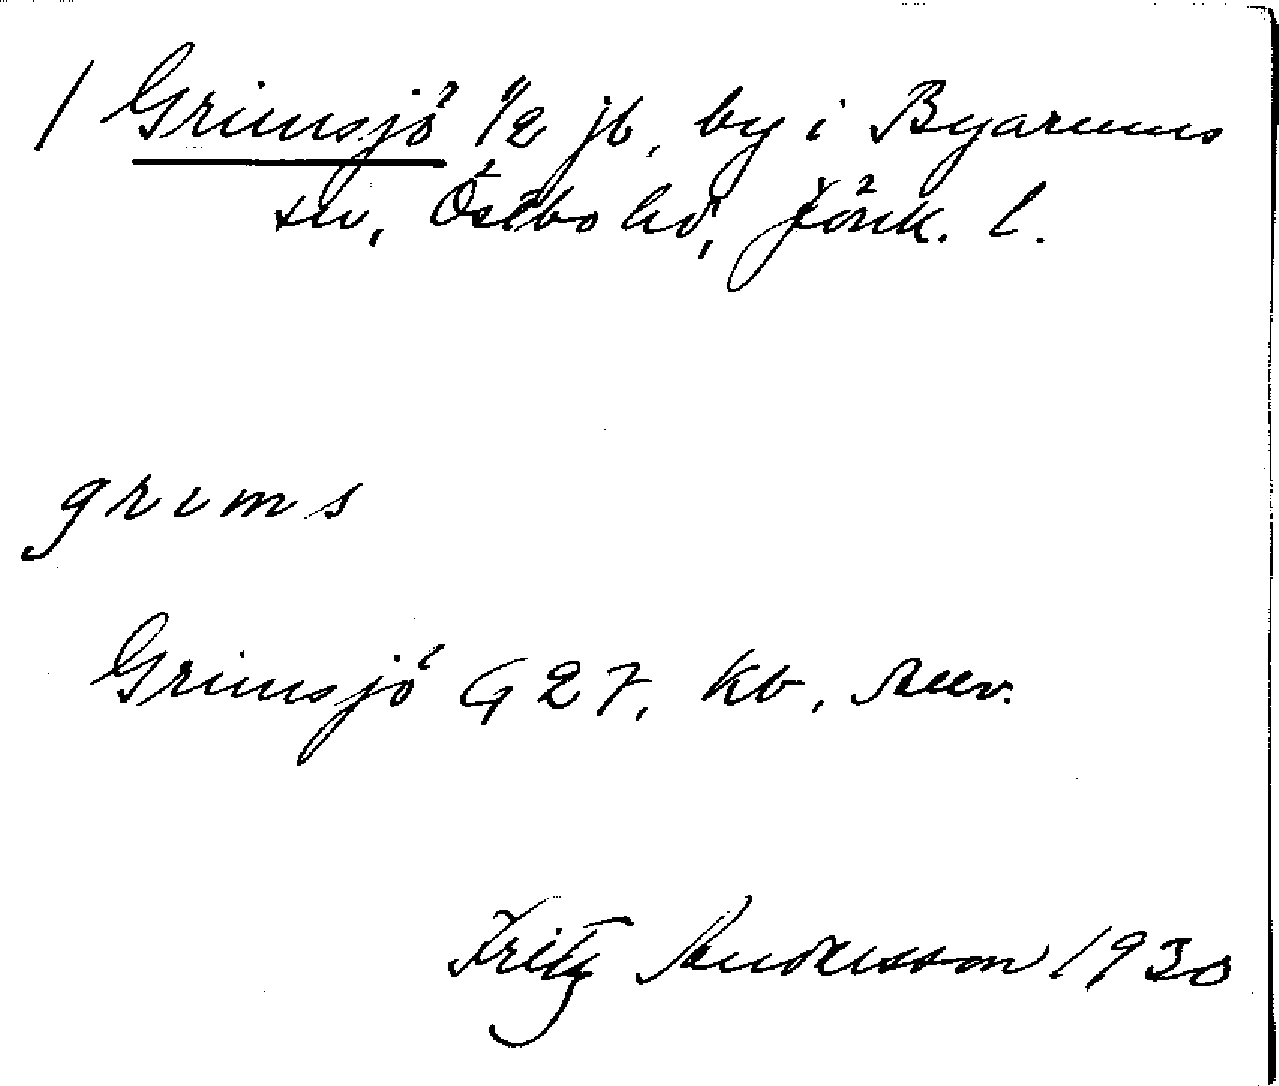 / Grimsjö 1/2 jb, by i Byarums
sn, Östbo hd, Jönk. l.
grims
Grimsjö G 27, Kb,
Fritz Andersson 1930